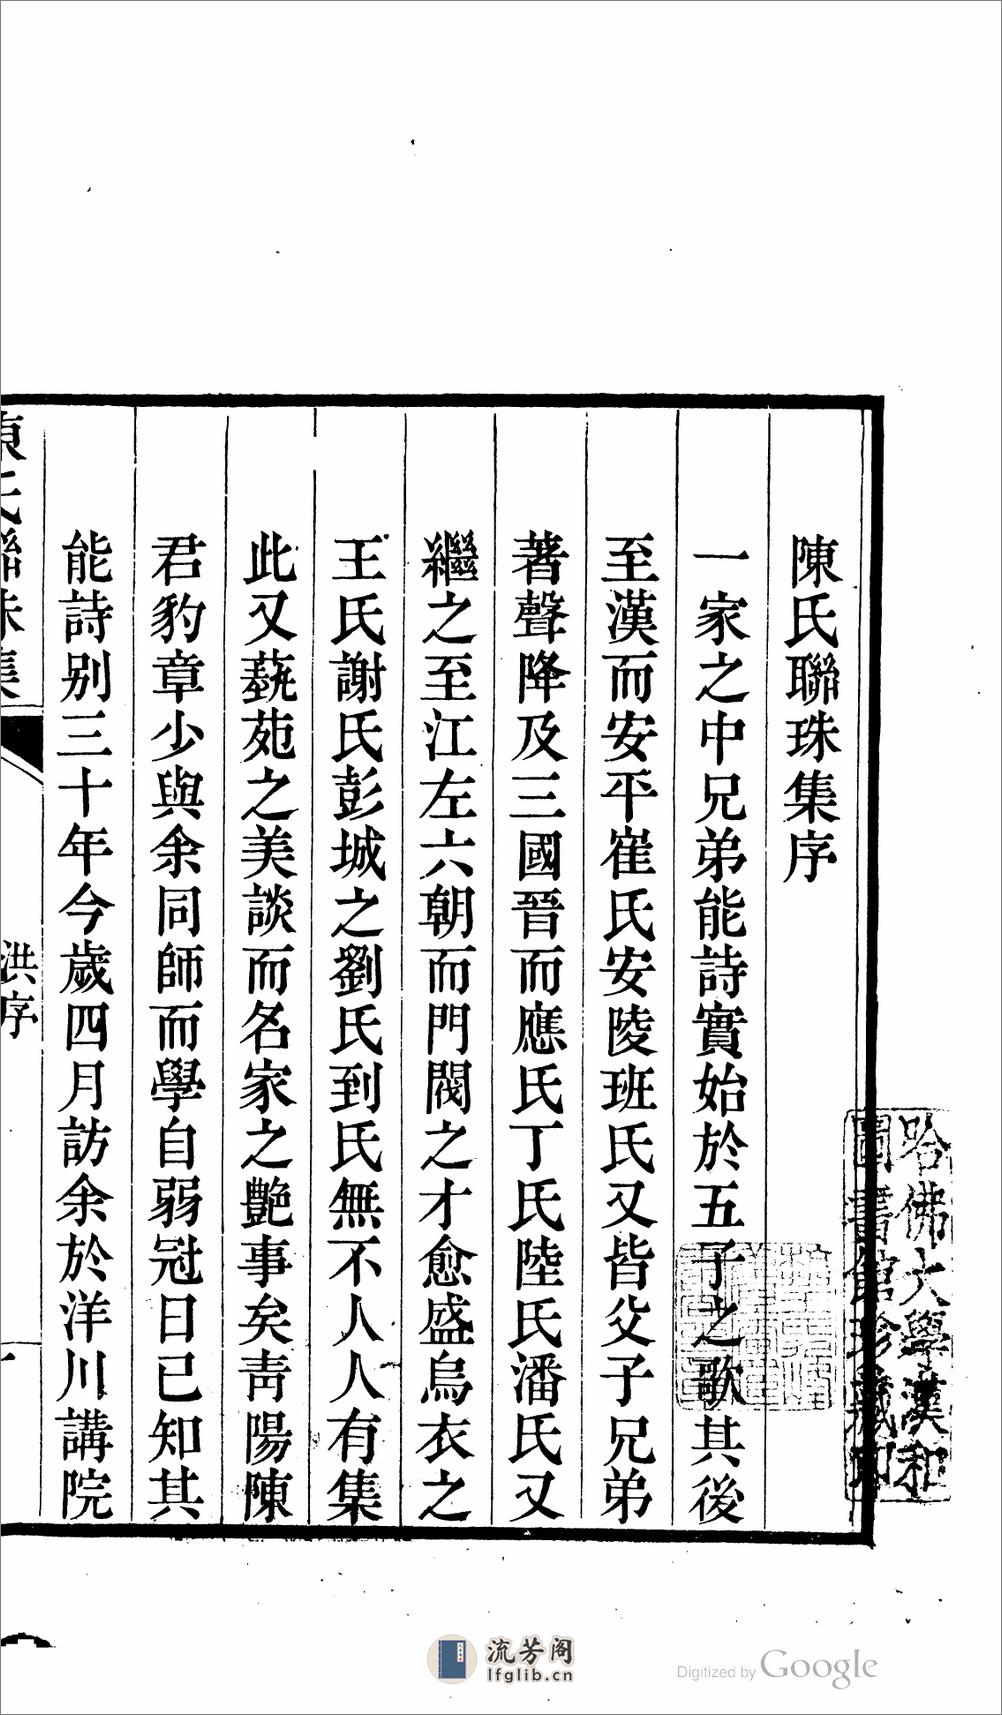 陳氏聯珠集序
一家之中兄弟能詩實始於五子之歌其後
至漢而安平崔氏安陵班氏又皆父子兄弟
著聲降及三國晉而應氏丁氏陸氏潘氏又
繼之至江左六朝而門閥之才愈盛烏衣之
王氏謝氏彭城之劉氏到氏無不人人有集
此又蓺苑之美談而名家之艷事矣靑陽陳
君豹章少與余同師而學自弱冠日已知其
能詩別三十年今歲四月訪余於洋川講院
陳氏聯珠集
洪序
一
哈佛大學漢和
圖書館珍藏印
流芳阁
lfglib.cn
Digitized by Google